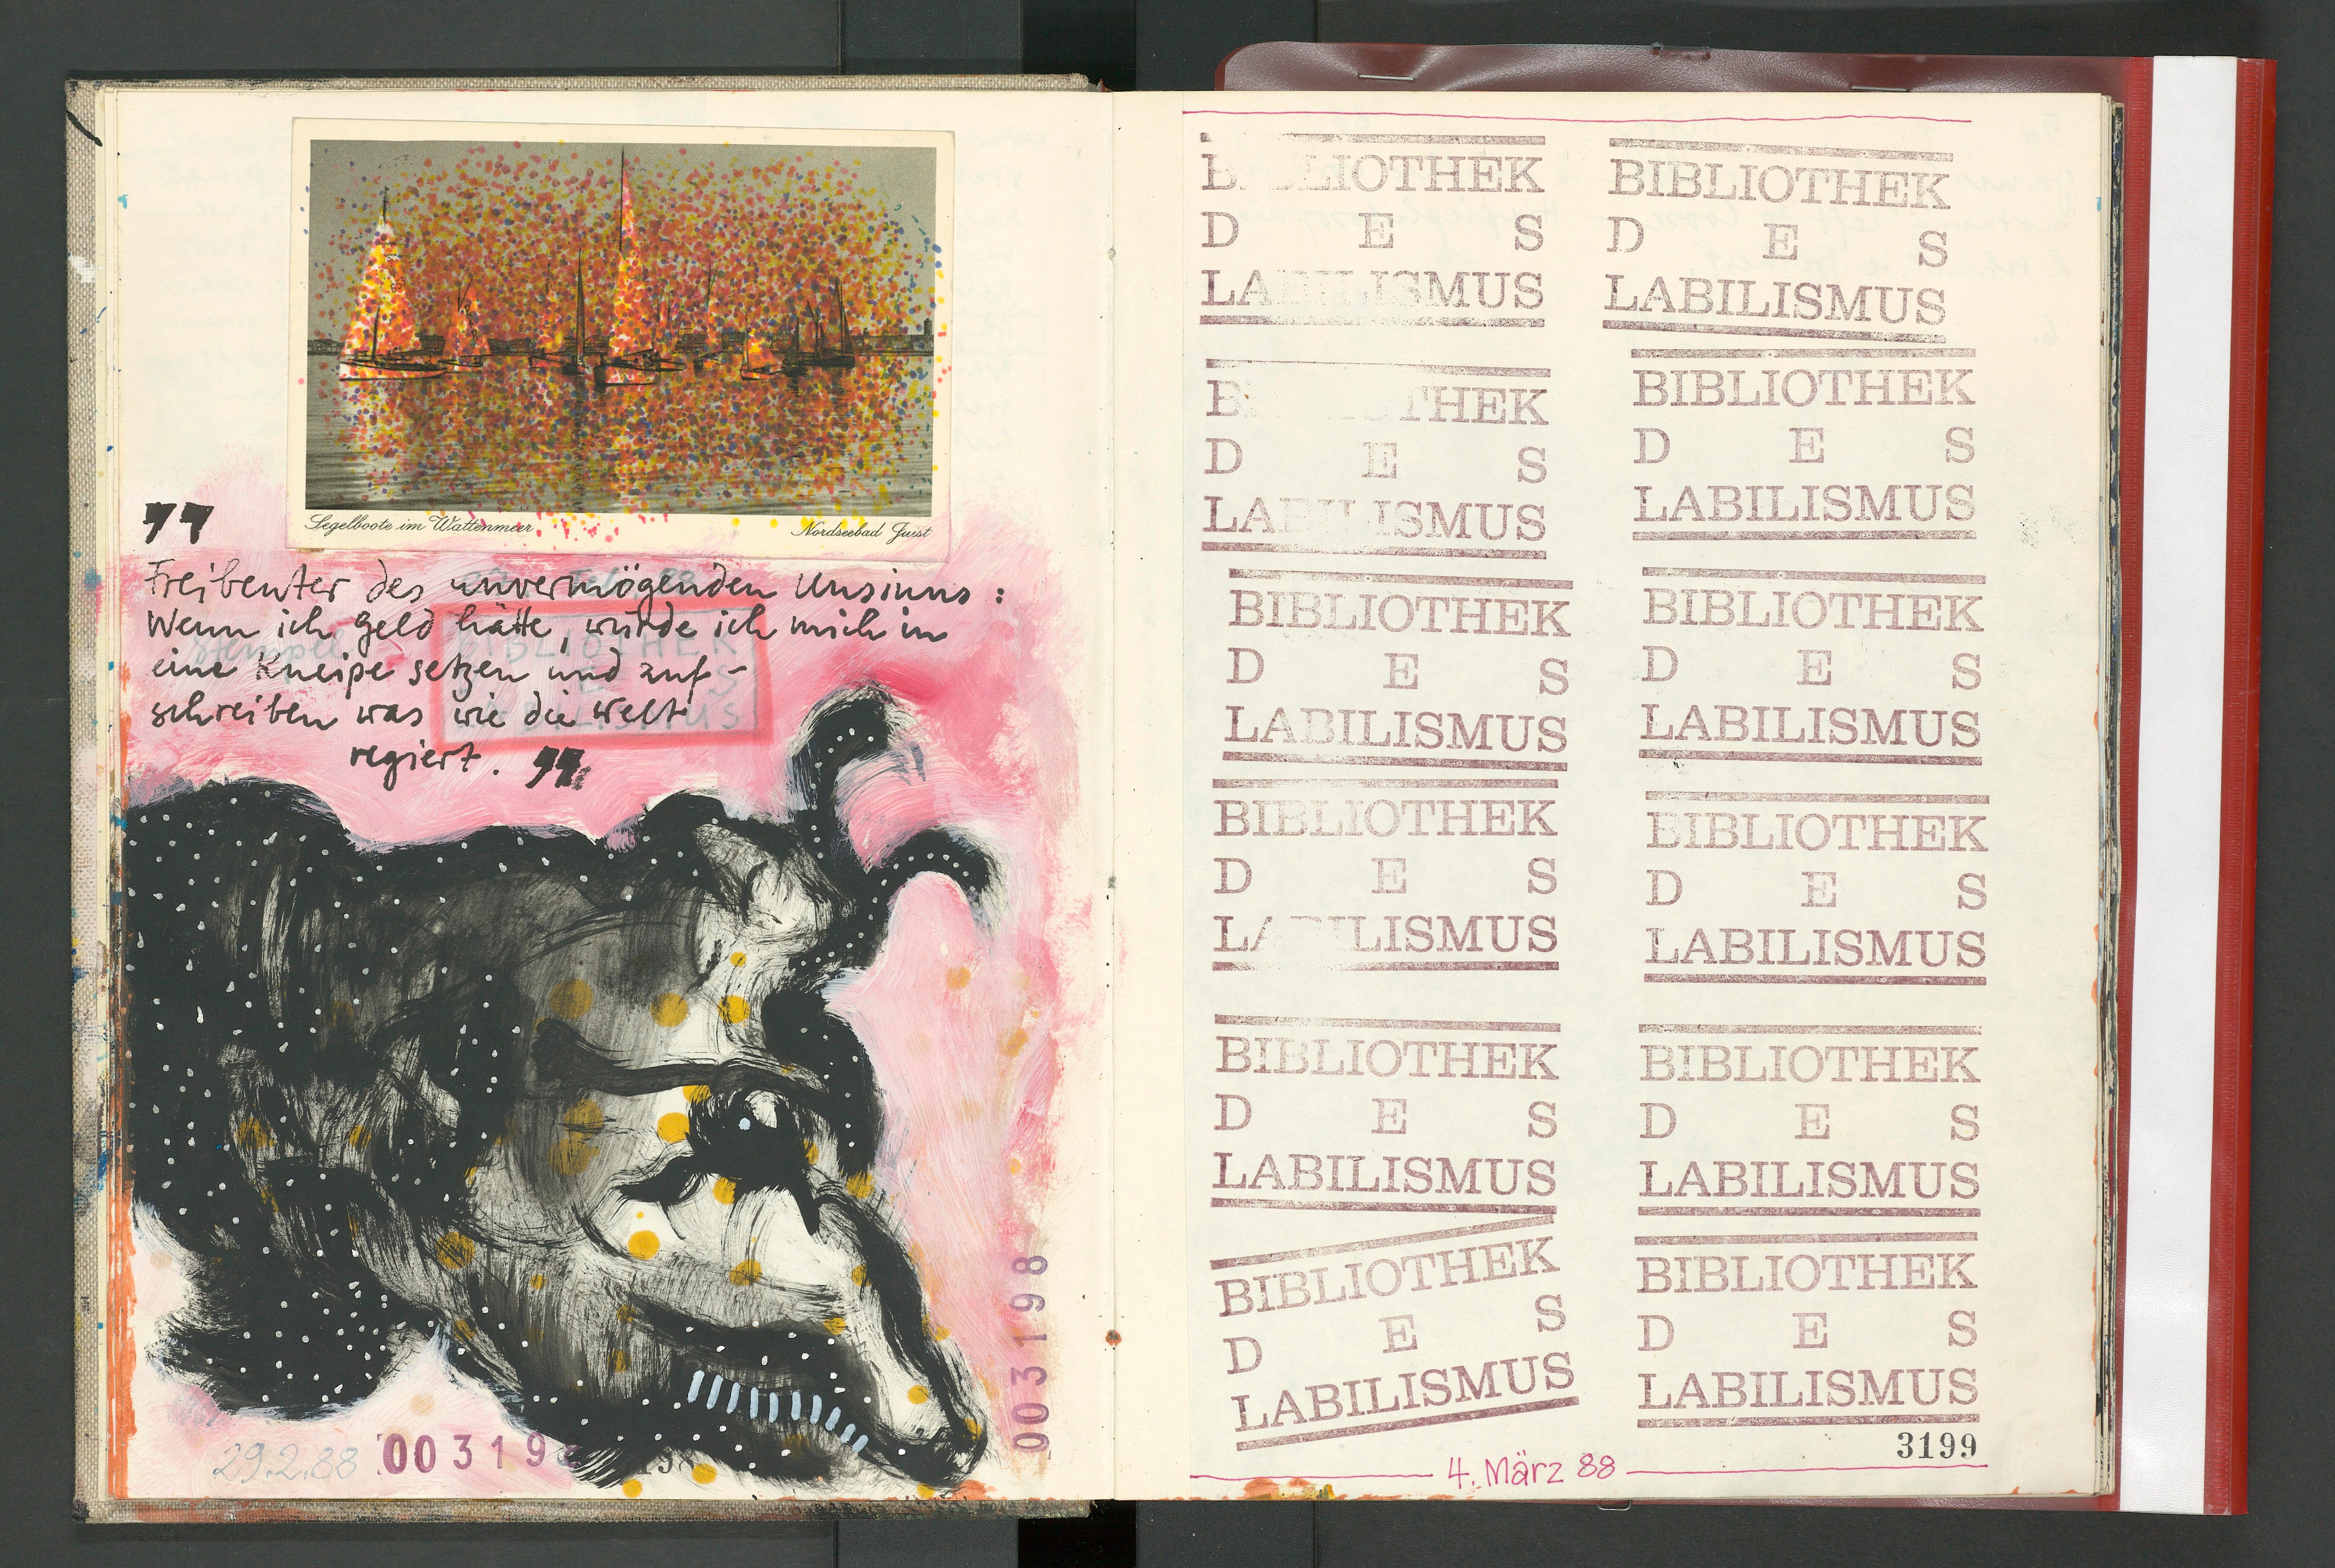 Segelboote im Wattenmeer
Nordseebad Juist
"
Freibeuter des unvermögenden Unsinns :
Wenn ich Geld hätte, würde ich mich in
eine Kneipe setzen und auf-
schreiben was wie die Welt
regiert. "
Stempel
BIBLIOTHEK
E S
LABILISMUS
29.2.88
003198
198
003198
BIBLIOTHEK
D E S
LABILISMUS
BIBLIOTHEK
D E S
LABILISMUS
BIBLIOTHEK
D E S
LABILISMUS
BIBLIOTHEK
D E S
LABILISMUS
BIBLIOTHEK
D E S
LABILISMUS
BIBLIOTHEK
D E S
LABILISMUS
BIBLIOTHEK
D E S
LABILISMUS
BIBLIOTHEK
D E S
LABILISMUS
BIBLIOTHEK
D E S
LABILISMUS
BIBLIOTHEK
D E S
LABILISMUS
BIBLIOTHEK
D E S
LABILISMUS
BIBLIOTHEK
D E S
LABILISMUS
3199
4. März 88